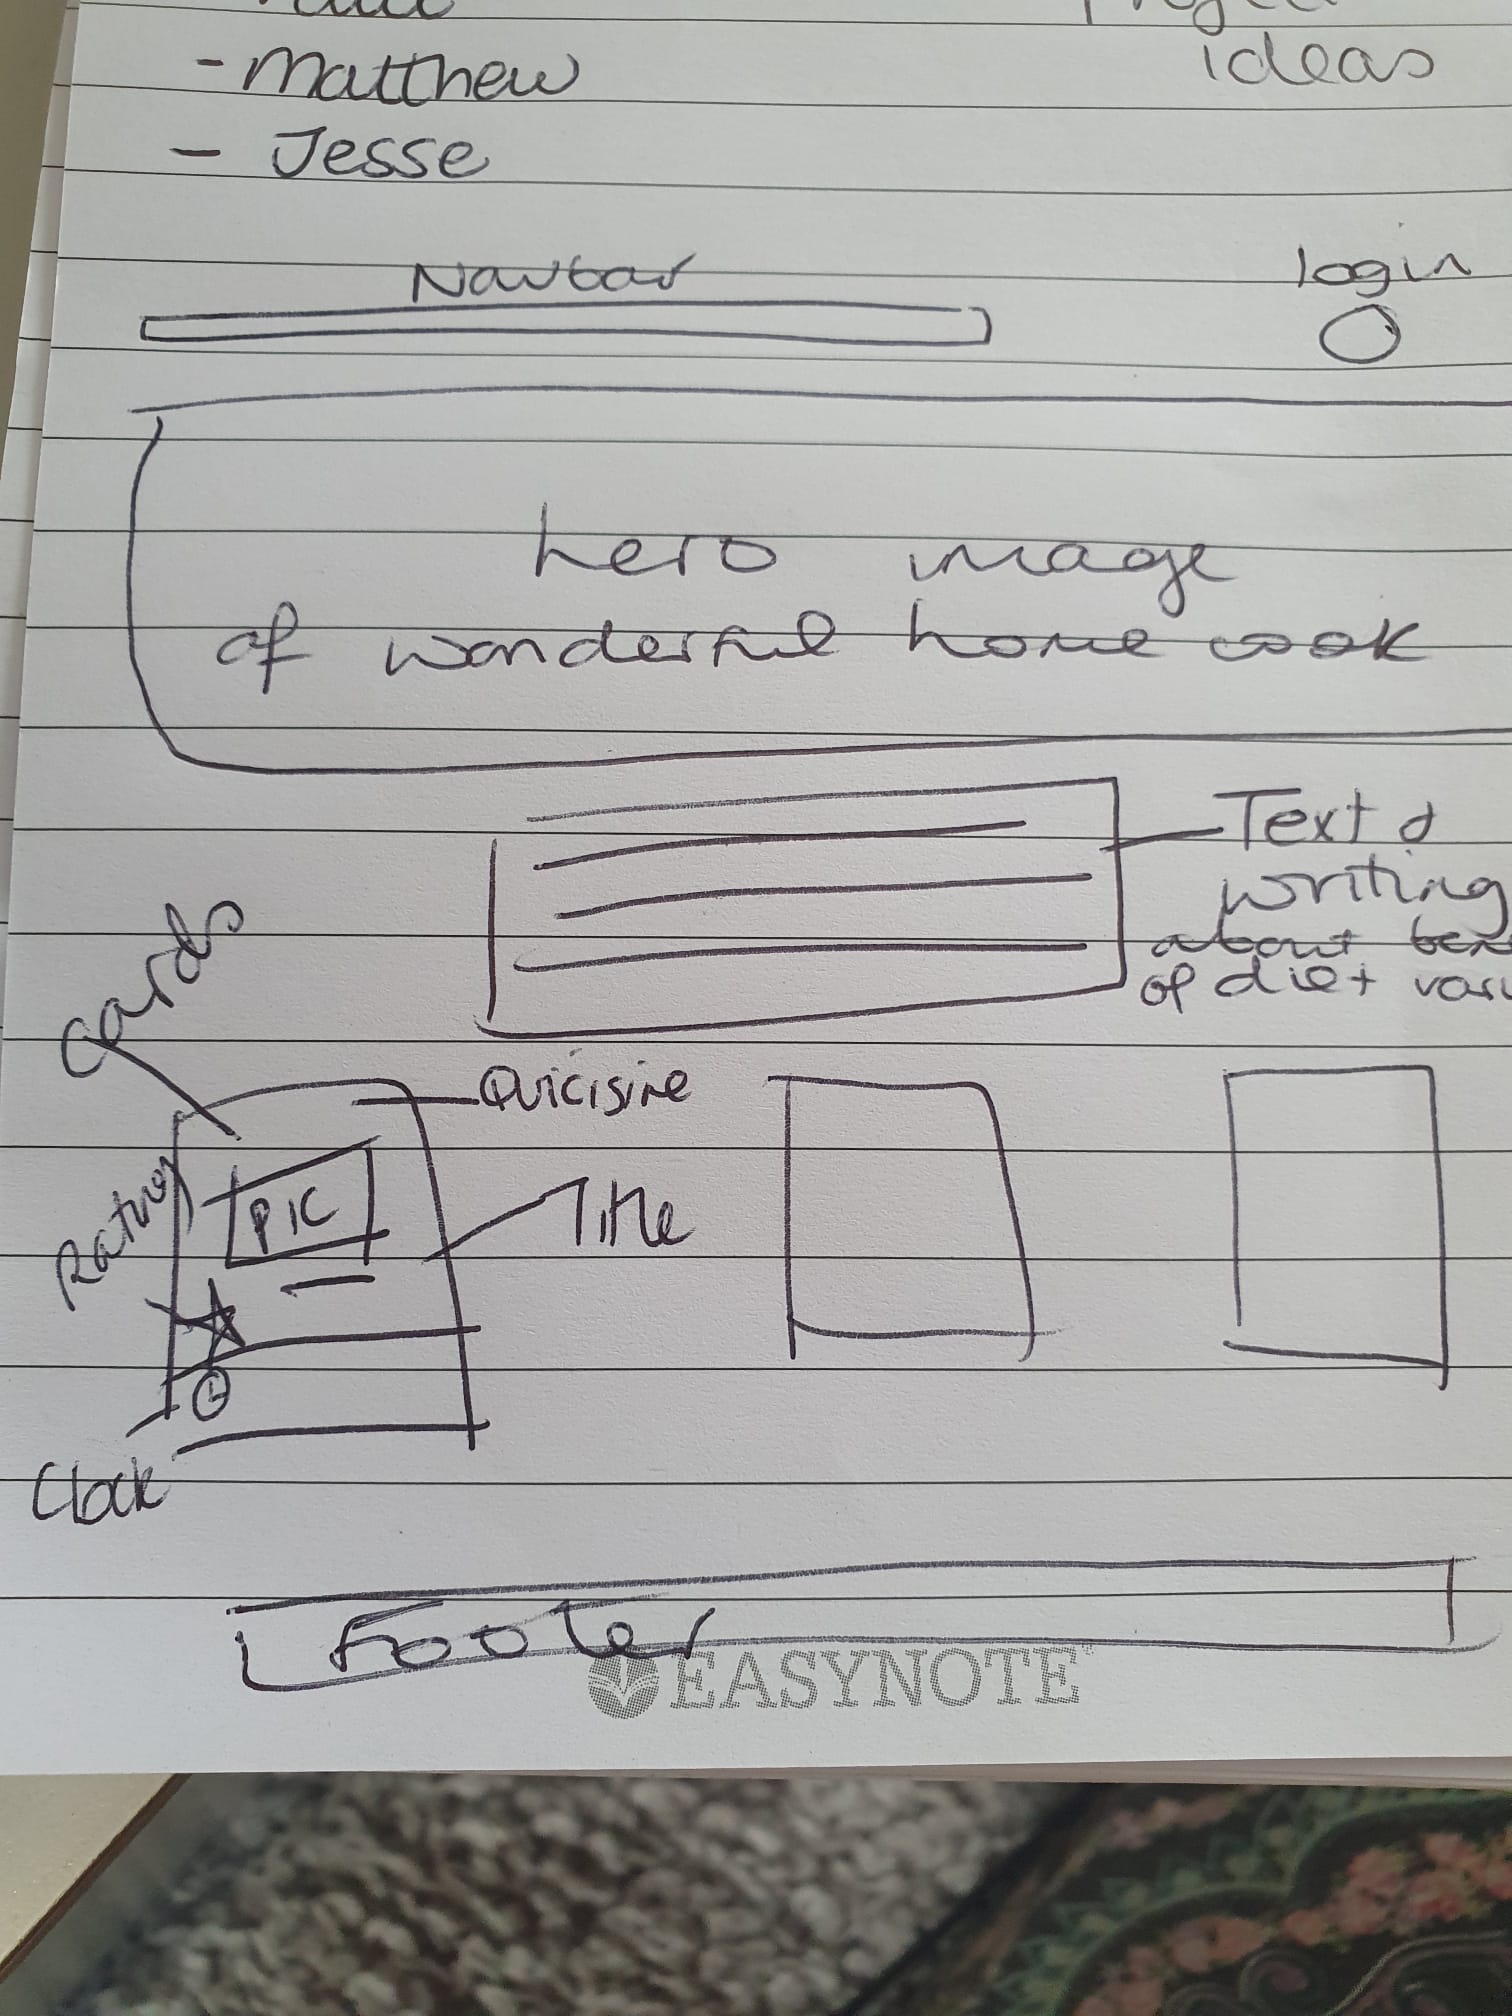 - Matthew
ideas
- Jesse
Navbar
login
hero image
of wonderful home cook
Text &
writing
about
of diet
Cards
Quicisine
Rating
PIC
Title
Clock
Footer
EASYNOTE